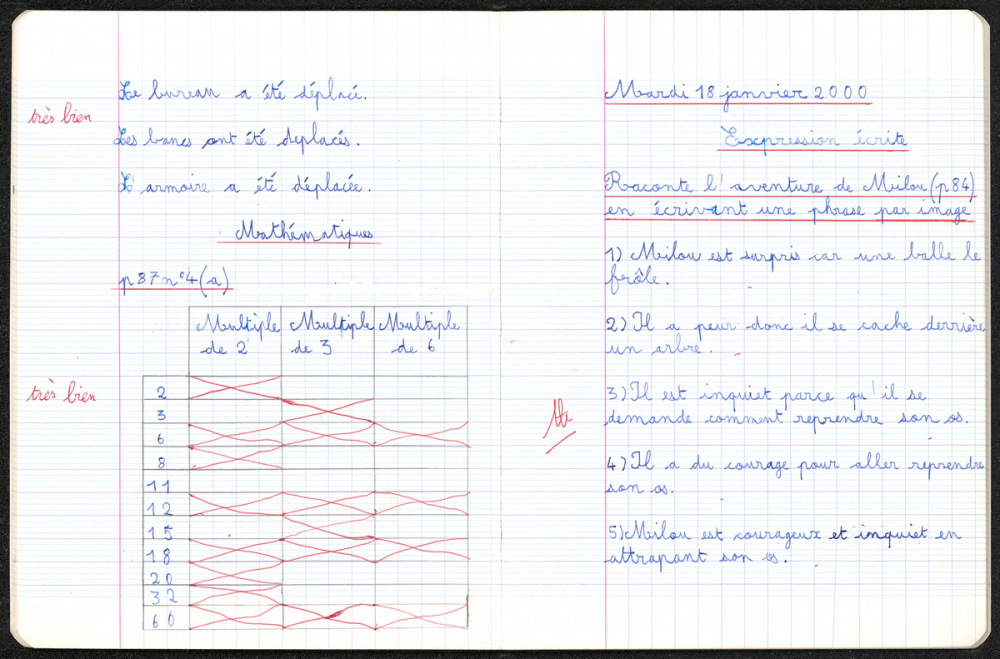 Le bureau a été déplacé.
très bien
Les bancs ont été deplacés.
L'armoire a été déplacée.
Mathématiques
p 87 n°4 (a)
Multiple Multiple Multiple
de 2 de 3 de 6
très bien
2
3
6
8
11
12
15
18
20
32
60
Mardi 18 janvier 2000
Expression écrite
Raconte l'aventure de Milou (p84)
en écrivant une phrase par image
1) Milou est surpris car une balle le
frôle.
2) Il a peur donc il se cache derrière
un arbre.
3) Il est inquiet parce qu'il se
demande comment reprendre son os.
4) Il a du courage pour aller reprendre
son os.
5) Milou est courageux et inquiet en
attrapant son os.